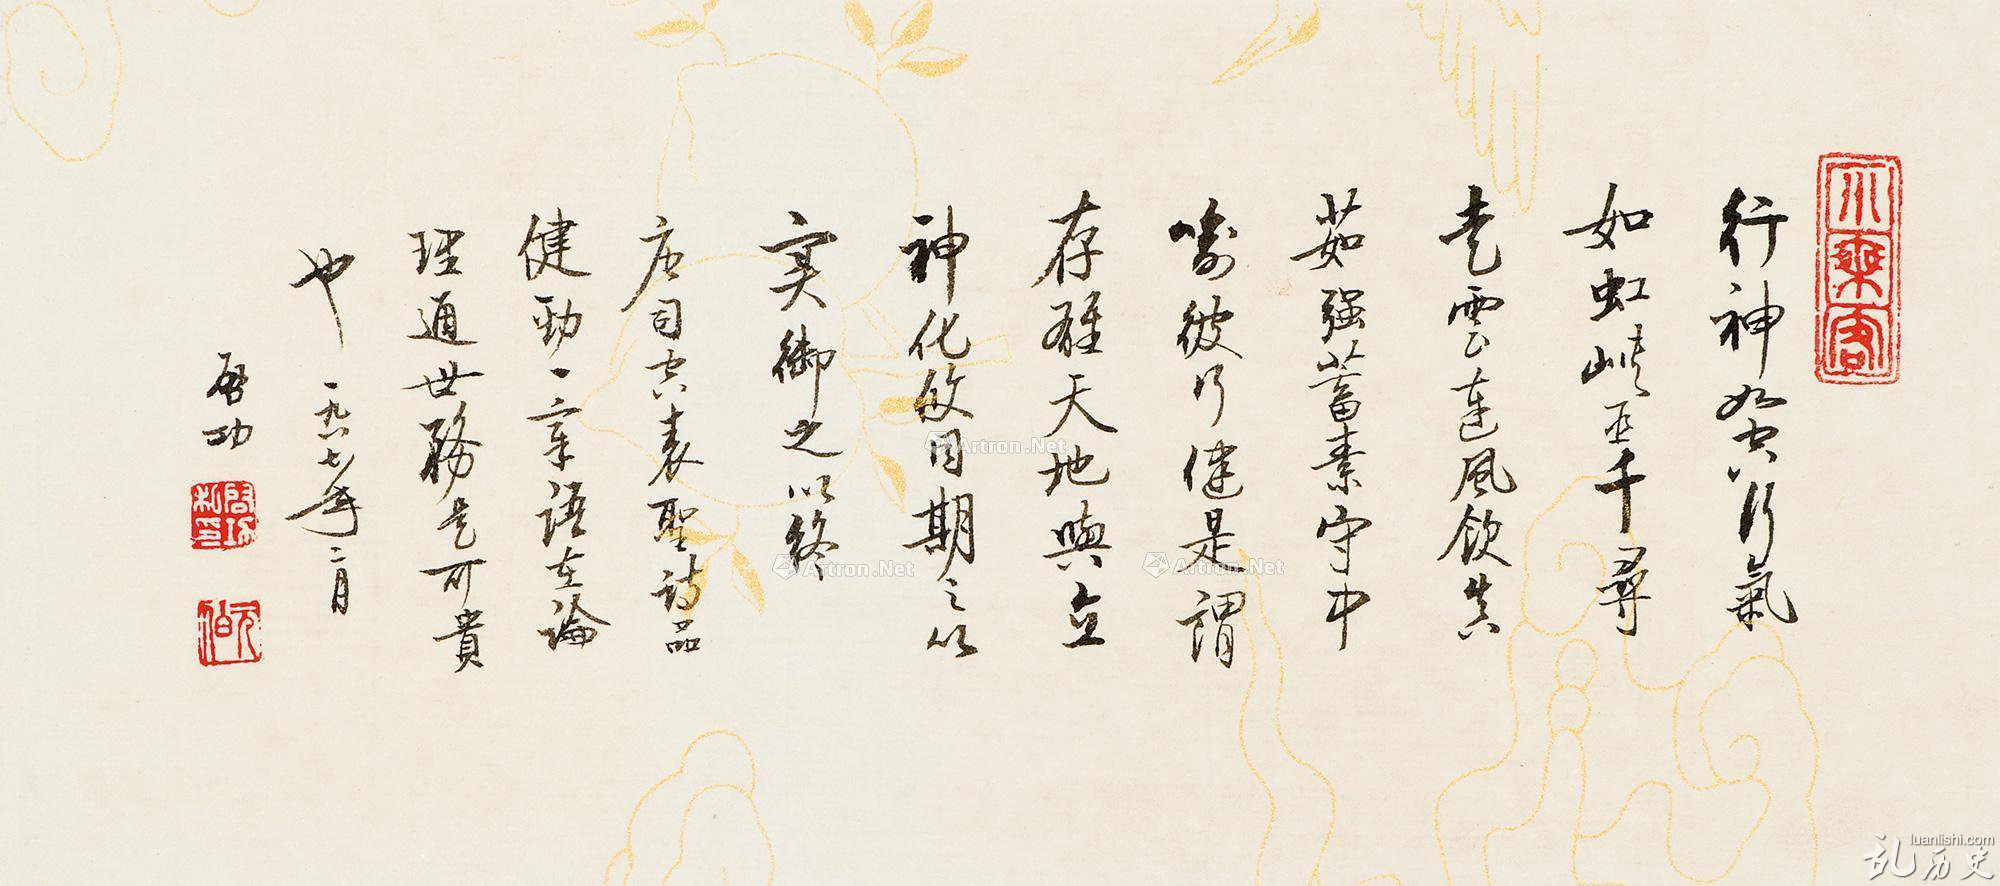 小乘客
行神如空行氣
如虹峽巫千尋
走雲連風飲真
茹强蓄素守中
喻彼行健是謂
存雄天地與立
神化攸同期之以
实御之以終
唐司空表聖詩品
健勁一章語在論
理通世務是可貴
也 一九八七年二月
啓功
啓功私印
元伯
Artron.Net
Artron.Net
Artron.Net
luanlishi.com
乱历史